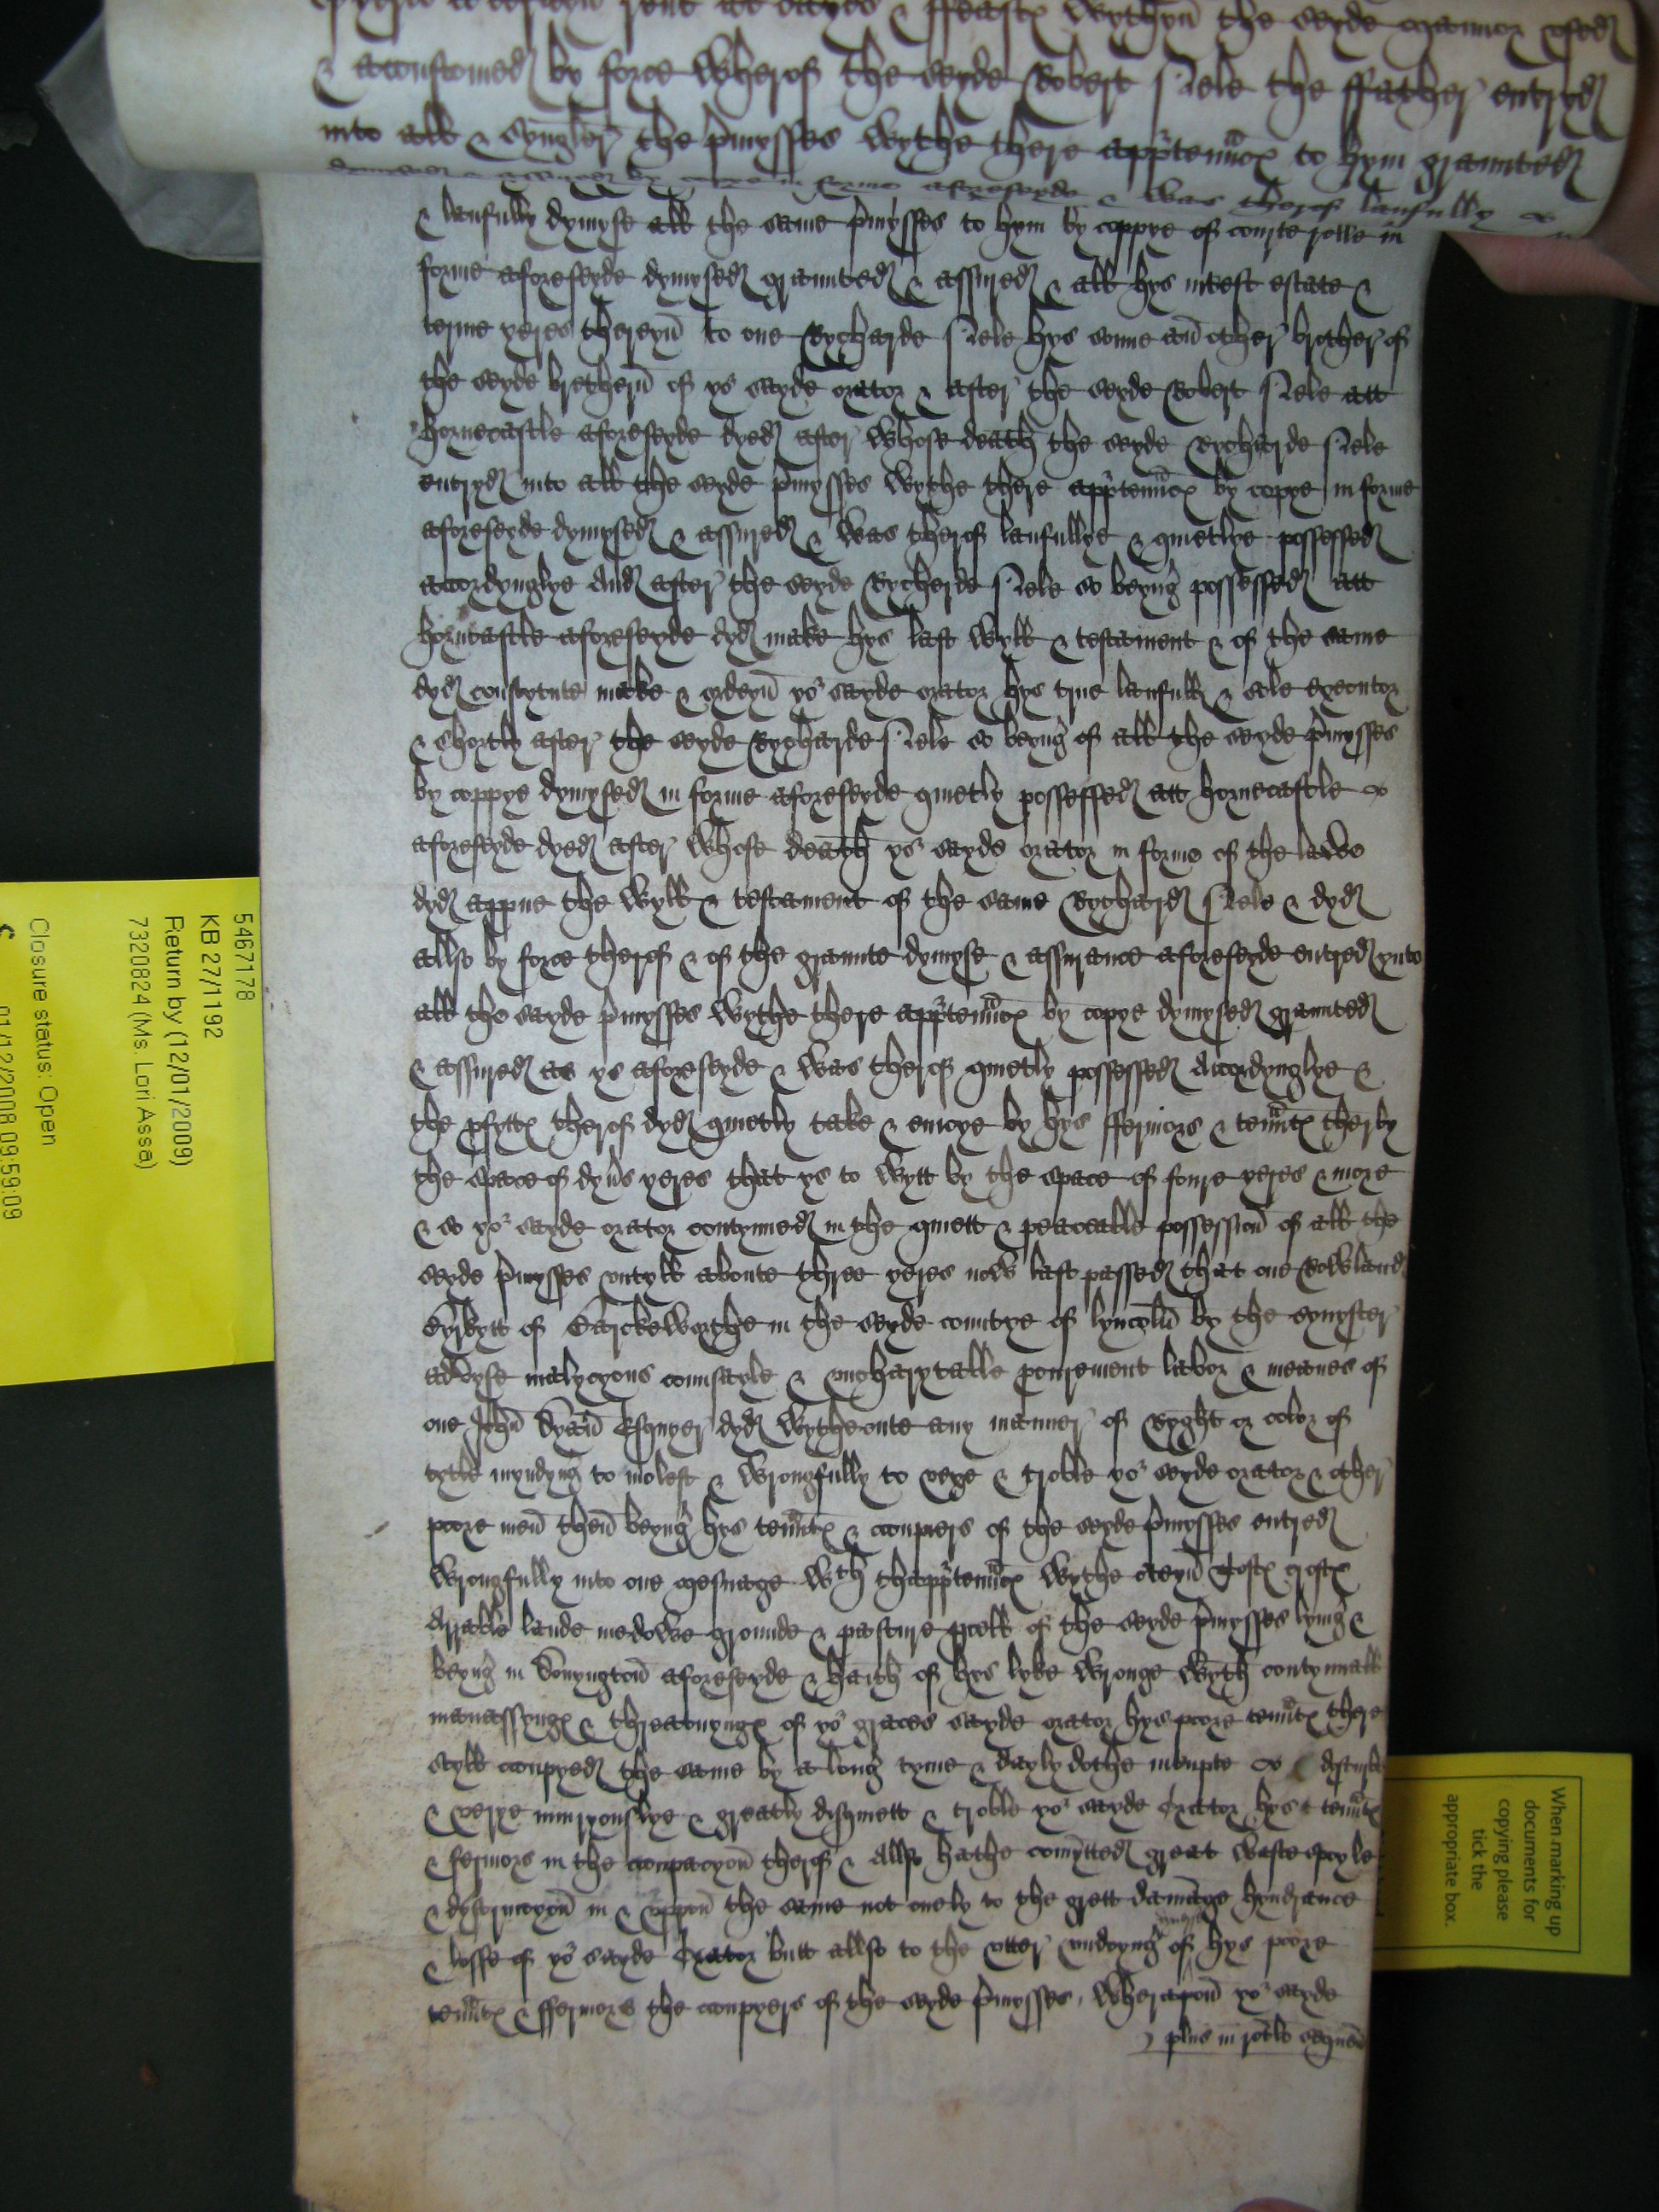 rent att dayes & ffeastes wythyn the seyde mannor vsed
& accustomed by force wherof the seyde Robert the ffather entryd
into all & synguler the pmysses wythe there apptennces to hym graunted
in forme aforeseyde & was therof laufully
& laufully dymyse all the same pmysses to hym by coppye of courte rolle in
forme aforeseyde dymysed graunted & assured & all hys intrest estate &
terme yeres thereyn to one Rycharde hys sonne an other brother of
the seyde brethern of yor sayde orator & after the seyde Robert att
Hornecastle aforeseyde dyed after whose death the seyde Rycharde
entryd into all the seyde pmysses wythe there apptennces by copye in forme
aforeseyde dymysed & assured & was therof laufullye & quietlye possessed
accordynglye And after the seyde Rycherde so beyng possessed att
horncastle aforeseyde dyd make hys last wyll & testament & of the same
dyd constytute make & ordeyn yor sayde orator hys true laufull & sole executor
& shortly after the seyde Rycharde so beyng of all the seyde pmysses
by coppye dymysed in forme aforeseyde quietly possessed att hornecastle
aforeseyde dyed after whose death yor sayde orator in forme of the lawe
dyd the wyll & testament of the same Rychard & dyd
allso by force therof & of the graunte dymyse & assurance aforeseyde entred ynto
all the sayde pmysses wythe there apptennces by copye dymysed graunted
& assured as ys aforeseyde & was therof quietly possessed Accordynglye &
the pfyttes therof dyd quietly take & enioye by hys ffermors & tennts therby
the space of dyus yeres that ys to wytt by the space of foure yeres & more
& so yor sayde orator contynued in the quiett & peaceable possession of all the
seyde pmysses vntyll aboute three yeres now last passed that one Rowland
of in the seyde countye of lyncoln by the synyster
advyse malycyous counsayle & vncharytable pcurement labor & meanes of
one John Dyon Esquyer dyd wytheoute any manner of Ryght or color of
tytle myndyng to molest & wrongfully to vexe & troble yor seyde orator & other
poore men then beyng hys tennts & occupiers of the seyde pmysses entred
wrongfully into one mesuage wth thapptennces wythe cteyn Toftes croftes
Arrable lande medowe grounde & pasture pcell of the seyde pmysses lying &
beyng in Donyngton aforeseyde & hath of hys lyke wronge wyth contynuall
manassynges & threatnynges of yor graces sayde orator hys poore tennts there
styll occupyed the same by a long tyme & dayly dothe disturbe
& verye iniuryouslye & greatly disquiett & troble yor sayde Orator hys tennts
& fermors in the occupacyon therof & Allso hathe comytted great waste spoyle
& dystruccyon in & vppon the same not onely to the grett damage hyndrance
& losse of yor sayde Orator butt allso to the vtter vndoyng of hys poore
tennts & ffermors the occupyers of the seyde pmysses, Wherapon yor sayde
plus in rotlo sequen
5467178
KB 27/1192
Return by (12/01/2009)
7320824 (Ms. Lori Assa)
Closure status: Open
01/12/2008 09:59:09
When marking up
documents for
copying please
tick the
appropriate box.